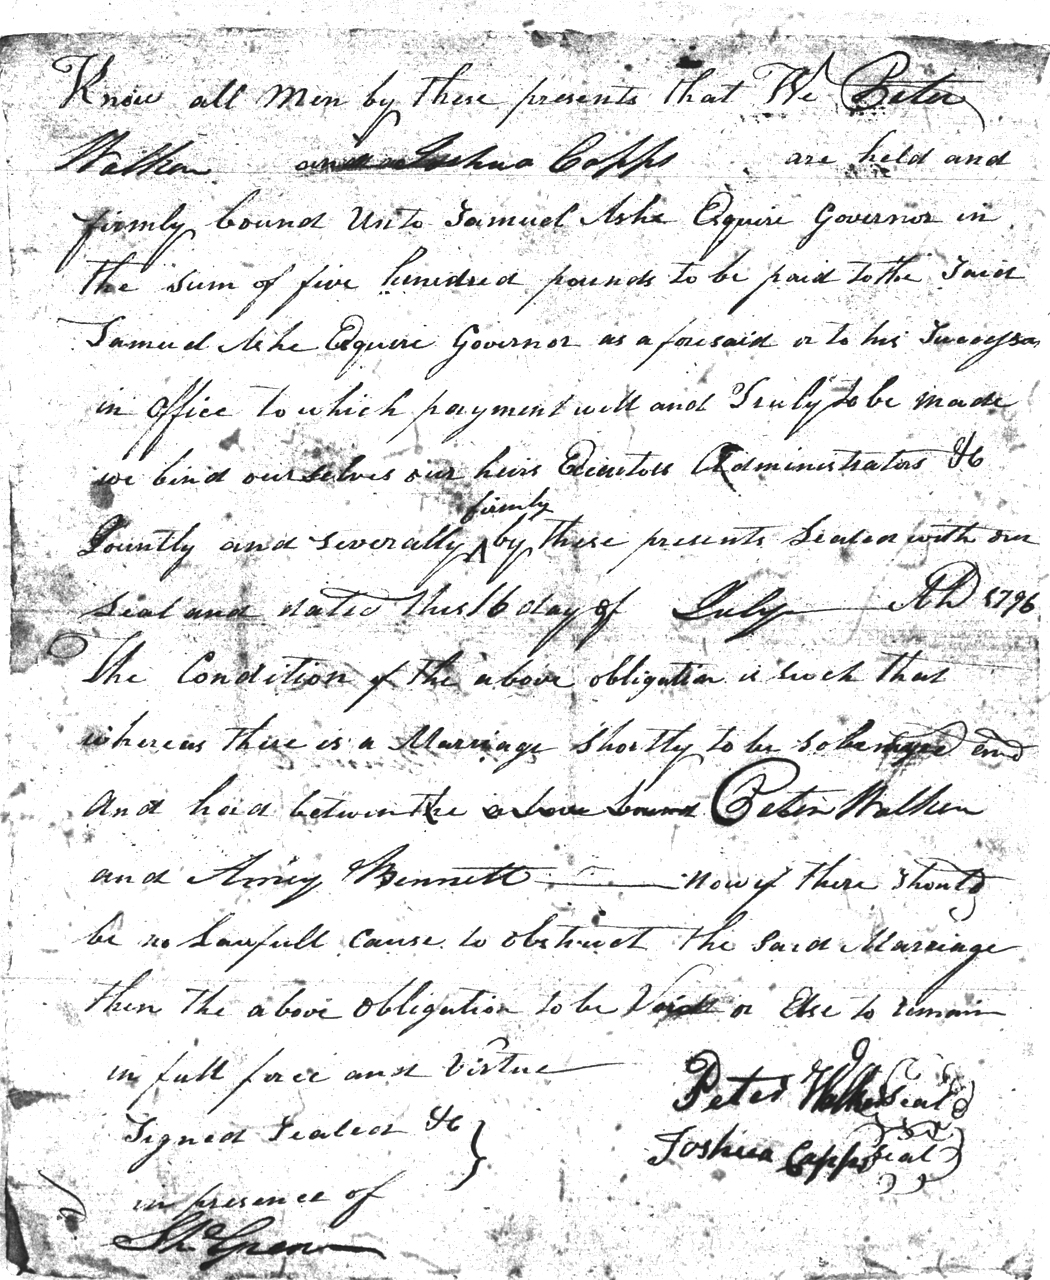 Know all Men by these presents that We Peter
Walker and Joshua Capps are held and
firmly bound Unto Samuel Ashe Esquire Governor in
the sum of five hundred pounds to be paid to the Said
Samuel Ashe Esquire Governor as aforesaid or to his Successor
in office to which payment well and Truly to be made
we bind ourselves our heirs Executors Administrators &c
firmly
Jountly and severally ʌ by these presents Sealed with our
seal and dated this 16 day of July AD 1796
The Condition of the above obligation is such that
whereas there is a Marriage Shortly to be solemnized and
And had between the above bound Peter Walker
and Bennett now if there should
be no Lawfull cause to obstruct the said Marriage
then the above obligation to be Void or Else to remain
in full force and Virtue
Peter Walker Seal
Signed Sealed &c
Joshua Capps Seal
in presence of
Green